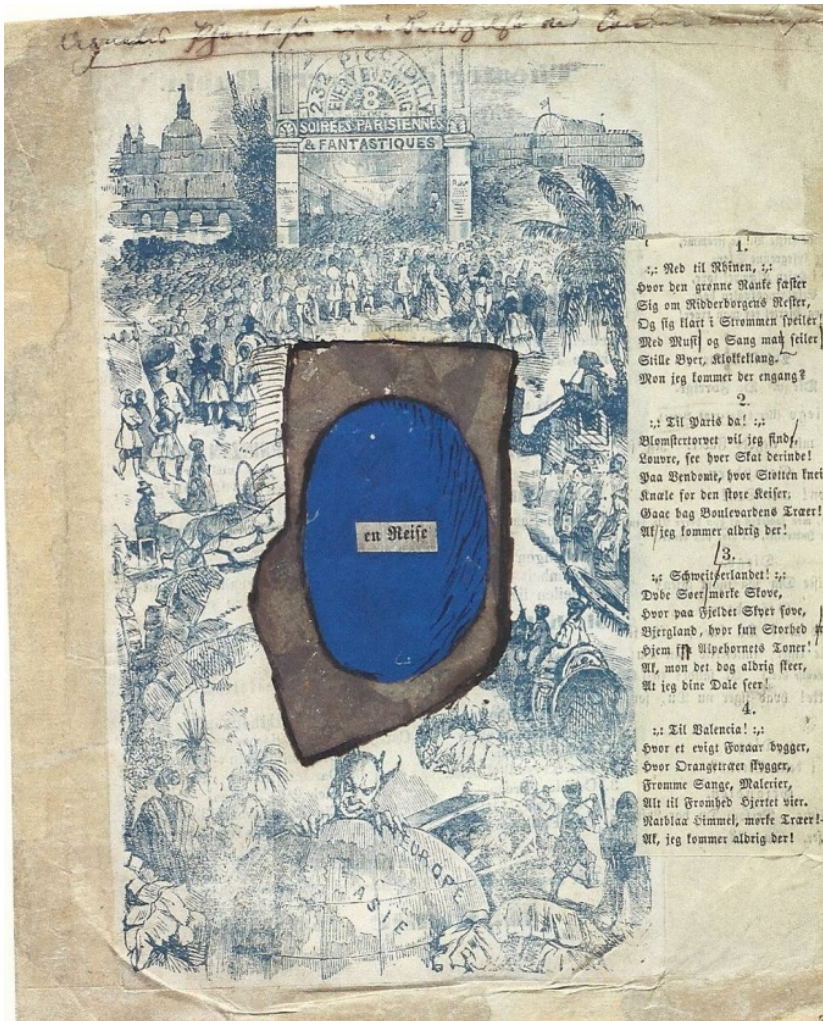 232 PICCADILLY
EVERY EVENING
8
SOIRÉES PARISIENNES
& FANTASTIQUES
en Reise
EUROPE
ASIE
1.
:,: Ned til Rhinen, :,:
Hvor den grønne Ranke fæster
Sig om Ridderborgens Rester,
Og sig klart i Strømmen speiler!
Med Musik og Sang man seiler
Stille Byer, Klokkeklang.
Mon jeg kommer der engang?
2.
:,: Til Paris da! :,:
Blomstertorvet vil jeg finde,
Louvre, see hver Skat derinde!
Paa Vendome, hvor Støtten knei
Knæle for den store Keiser;
Gaae bag Boulevardens Træer!
Ak, jeg kommer aldrig der!
3.
:,: Schweitserlandet! :,:
Dybe Søer, mørke Skove,
Hvor paa Fjeldet Skyer sove,
Bjergland, hvor kun Storhed
Hjem for Alpehornets Toner!
Ak, mon det dog aldrig skeer,
At jeg dine Dale seer!
4.
:,: Til Valencia! :,:
Hvor et evigt Foraar bygger,
Hvor Orangetræet skygger,
Fromme Sange, Malerier,
Alt til Fromhed Hjertet vier.
Natblaa Himmel, mørke Træer!
Ak, jeg kommer aldrig der!